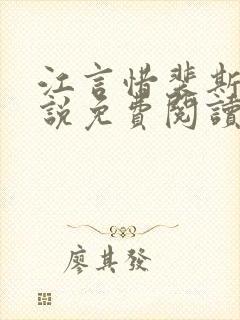 江言惜裴斯
說免費閱讀
廖其發